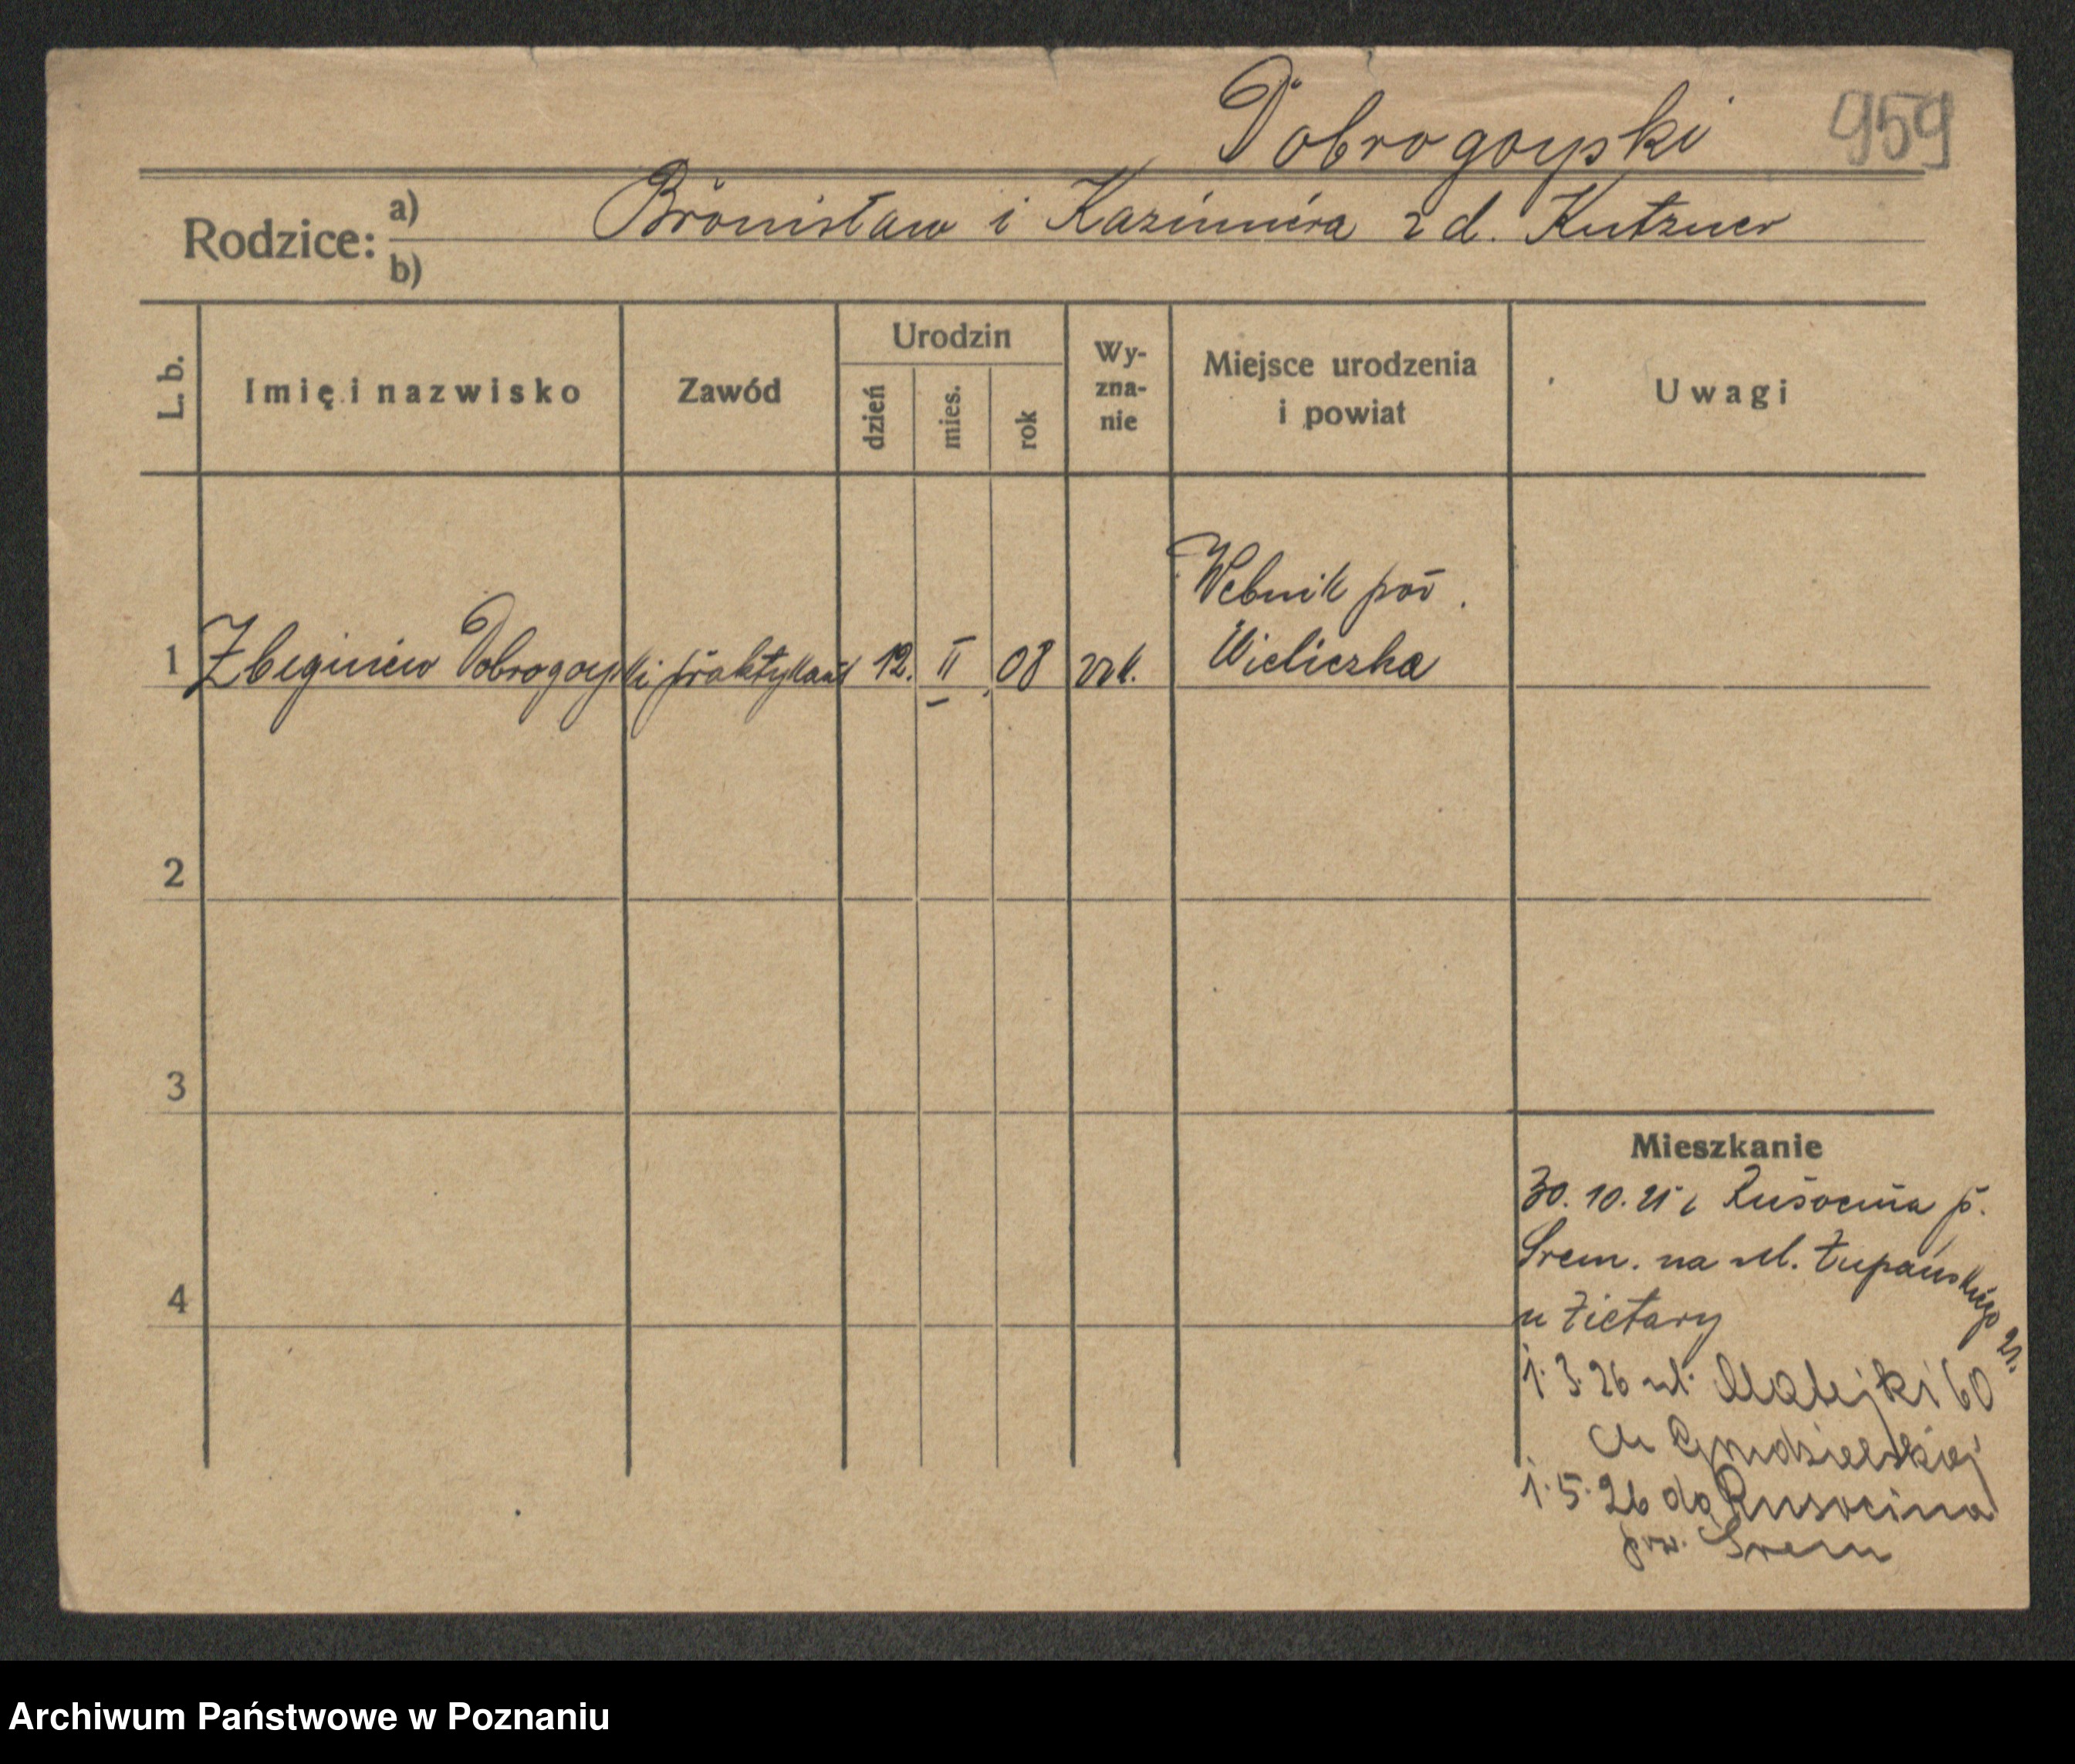 Dobrogoyski 959
Rodzice: a) Bronisław i Kazimiera z d. Kutzner
b)
L. b. Imię i nazwisko Zawód Urodzin dzień mies. rok Wy-zna-nie Miejsce urodzenia i powiat Uwagi
Webnik pow.
1 Zbigniew Dobrogoyski praktykant 12. II 08 rzk. Wieliczka
2
3
Mieszkanie
30. 10. 25 z Rusocina p.
Śrem. na ul. Łupańskiego 21.
4
u Ziętary
1. 3. 26 ul. Matejki 60
1. 5. 26 do Rusocina
pow. Śrem
Archiwum Państwowe w Poznaniu